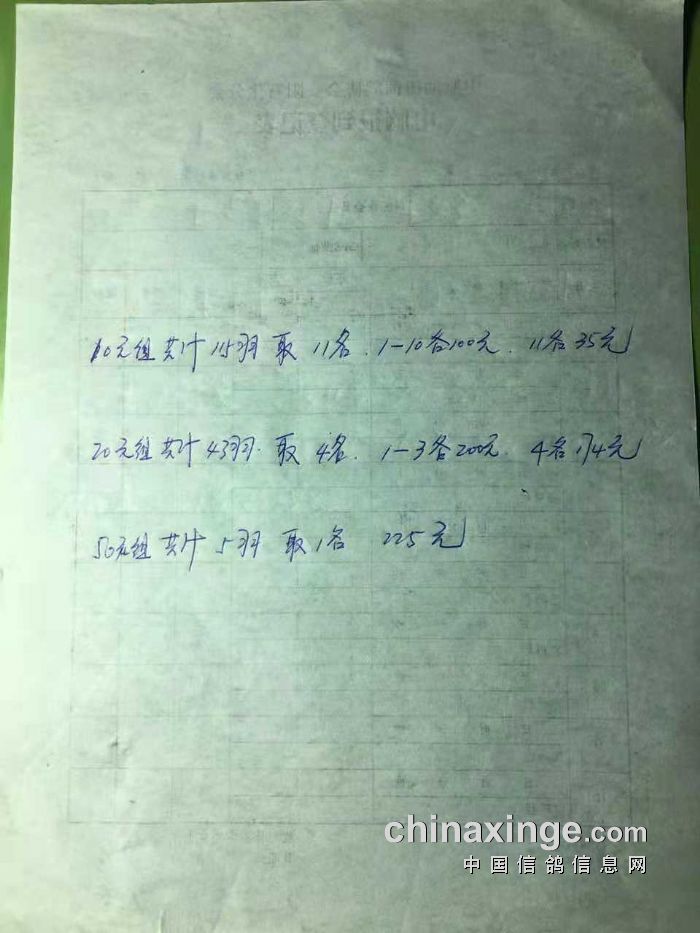 10元组共计115羽 取 11名. 1-10各100元. 11名35元
20元组共计43羽. 取 4名. 1-3各200元. 4名174元
50元组共计5羽 取1名 225元
chinaxinge.com
中国信鸽信息网